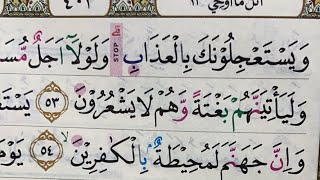 اتل ما اوحي ٢١
٤٠٢
وَيَسْتَعْجِلُوْنَكَ بِالْعَذَابِۗ STOP وَلَوْلَآ اَجَلٌ مُّسَ
وَلَيَأْتِيَنَّهُمْ بَغْتَةً وَّهُمْ لَا يَشْعُرُوْنَ ٥٣ يَسْتَ
وَاِنَّ جَهَنَّمَ لَمُحِيْطَةٌۢ بِالْكٰفِرِيْنَۙ ٥٤ يَوْمَ